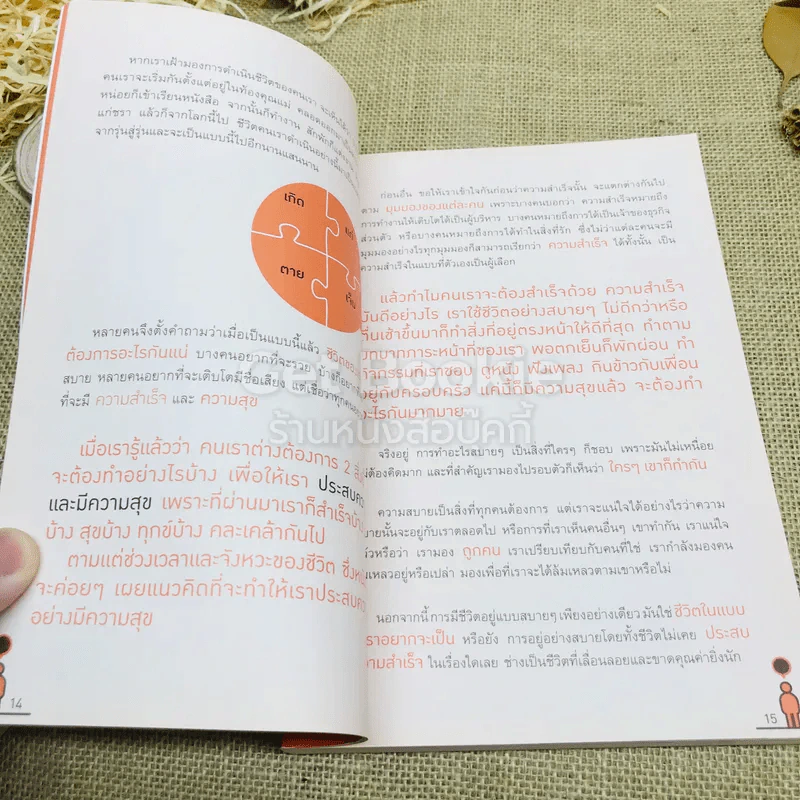 หากเราเฝ้ามองการดำเนินชีวิตของคนเรา จะเห็นได้
คนเราจะเริ่มกันตั้งแต่อยู่ในท้องคุณแม่ คลอดออกมา
หน่อยก็เข้าเรียนหนังสือ จากนั้นก็ทำงาน สักพัก
แก่ชรา แล้วก็จากโลกนี้ไป ชีวิตคนเราดำเนินอย่างนี้
จากรุ่นสู่รุ่นและจะเป็นแบบนี้ไปอีกนานแสนนาน
เกิด
ตาย
หลายคนจึงตั้งคำถามว่าเมื่อเป็นแบบนี้แล้ว
ต้องการอะไรกันแน่ บางคนอยากที่จะรวย
สบาย หลายคนอยากที่จะเติบโตมีชื่อเสียง แต่เชื่อว่าทุกคน
ที่จะมี ความสำเร็จ และ ความสุข
เมื่อเรารู้แล้วว่า คนเราต่างต้องการ 2
จะต้องทำอย่างไรบ้าง เพื่อให้เรา ประสบ
และมีความสุข เพราะที่ผ่านมาเราก็สำเร็จ
บ้าง สุขบ้าง ทุกข์บ้าง คละเคล้ากันไป
ตามแต่ช่วงเวลาและจังหวะของชีวิต
จะค่อยๆ เผยแนวคิดที่จะทำให้เราประสบ
อย่างมีความสุข
14
ก่อนอื่น ขอให้เราเข้าใจกันก่อนว่าความสำเร็จนั้น จะแตกต่างกันไป
ตาม มุมมองของแต่ละคน เพราะบางคนบอกว่า ความสำเร็จหมายถึง
การทำงานให้เติบโตได้เป็นผู้บริหาร บางคนหมายถึงการได้เป็นเจ้าของธุรกิจ
ส่วนตัว หรือบางคนหมายถึงการได้ทำในสิ่งที่รัก ซึ่งไม่ว่าแต่ละคนจะมี
มุมมองอย่างไรทุกมุมมองก็สามารถเรียกว่า ความสำเร็จ ได้ทั้งนั้น เป็น
ความสำเร็จในแบบที่ตัวเองเป็นผู้เลือก
แล้วทำไมคนเราจะต้องสำเร็จด้วย ความสำเร็จ
มันดีอย่างไร เราใช้ชีวิตอย่างสบายๆ ไม่ดีกว่าหรือ
ตื่นเช้าขึ้นมาก็ทำสิ่งที่อยู่ตรงหน้าให้ดีที่สุด ทำตาม
บทบาทภาระหน้าที่ของเรา พอตกเย็นก็พักผ่อน ทำ
กิจกรรมที่เราชอบ ดูหนัง ฟังเพลง กินข้าวกับเพื่อน
อยู่กับครอบครัว แค่นี้ก็มีความสุขแล้ว จะต้องทำ
อะไรกันมากมาย
จริงอยู่ การทำอะไรสบายๆ เป็นสิ่งที่ใครๆ ก็ชอบ เพราะมันไม่เหนื่อย
ไม่ต้องคิดมาก และที่สำคัญเรามองไปรอบตัวก็เห็นว่า ใครๆ เขาก็ทำกัน
ความสบายเป็นสิ่งที่ทุกคนต้องการ แต่เราจะแน่ใจได้อย่างไรว่าความ
สบายนั้นจะอยู่กับเราตลอดไป หรือการที่เราเห็นคนอื่นๆ เขาทำกัน เราแน่ใจ
แล้วหรือว่า เรามอง ถูกคน เราเปรียบเทียบกับคนที่ใช่ เรากำลังมองคน
ล้มเหลวอยู่หรือเปล่า มองเพื่อที่เราจะได้ล้มเหลวตามเขาหรือไม่
นอกจากนี้ การมีชีวิตอยู่แบบสบายๆ เพียงอย่างเดียว มันใช่ ชีวิตในแบบ
เราอยากจะเป็น หรือยัง การอยู่อย่างสบายโดยทั้งชีวิตไม่เคย ประสบ
ความสำเร็จ ในเรื่องใดเลย ช่างเป็นชีวิตที่เลื่อนลอยและขาดคุณค่ายิ่งนัก
15
Get Bookie
ร้านหนังสือบุ๊คกี้